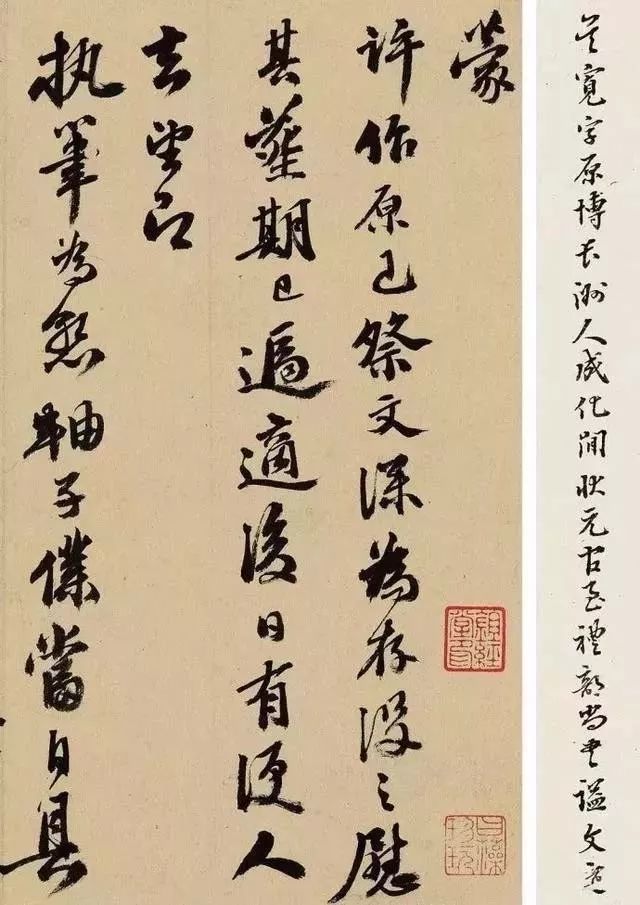 吳寬字原博長洲人成化間狀元官至禮部尚書謚文定
蒙
許作原已祭文深為存沒之慰
其塟期已逼適後日有便人
去望即
執筆為懇軸子僕當自具